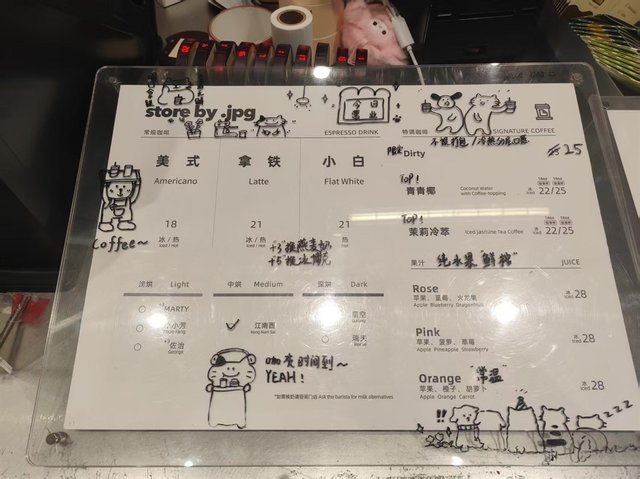 store by .jpg
今日营业
常规咖啡
ESPRESSO DRINK
特调咖啡
SIGNATURE COFFEE
美式
Americano
18
冰 / 热
Iced / Hot
拿铁
Latte
21
冰 / 热
Iced / Hot
小白
Flat White
21
热
Hot
+3 换燕麦奶
+5 换冰博克
Coffee~
浅烘 Light
中烘 Medium
深烘 Dark
MARTY
小芳
佐治
George
江南西
瑞夫
咖啡时间到~
YEAH!
*如需换奶请咨询门店 Ask the barista for milk alternatives
Dirty
25
TOP!
青青椰
Coconut Water
with Coffee-topping
冰 22/25
TOP!
茉莉冷萃
Iced Jasmine Tea Coffee
冰 22/25
果汁
纯水果"鲜榨"
JUICE
Rose
苹果、蓝莓、火龙果
Apple Blueberry Dragonfruit
冰 28
Iced
Pink
苹果、菠萝、草莓
Apple Pineapple Strawberry
冰 28
Iced
Orange "常温"
苹果、橙子、胡萝卜
Apple Orange Carrot
冰 28
Iced
!!
zzz